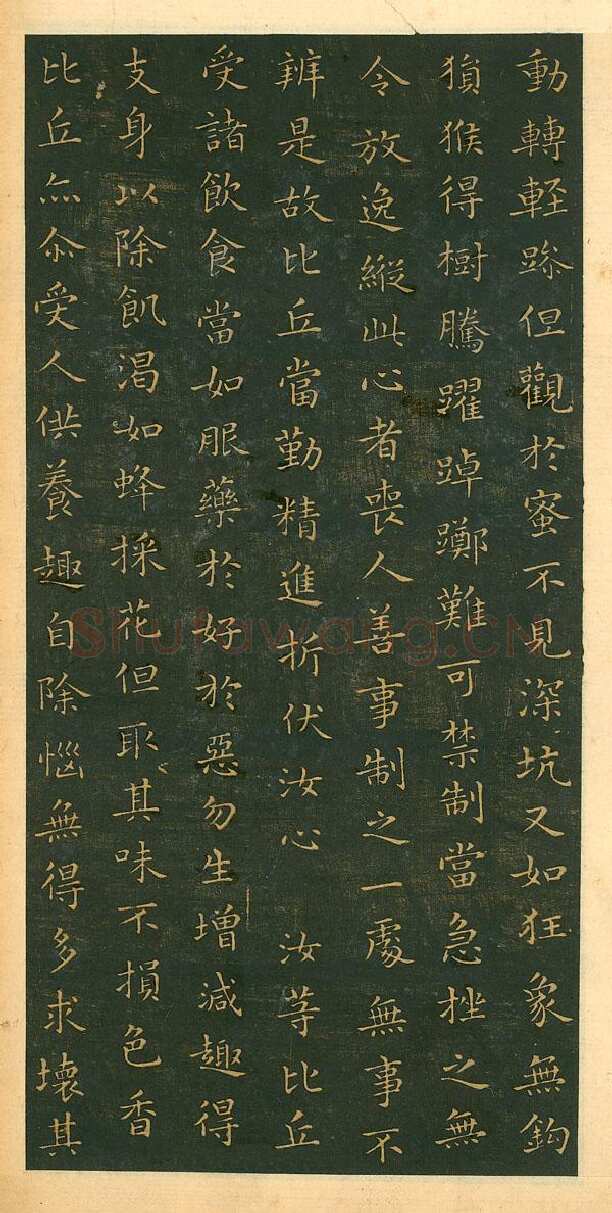 動轉輕躁但觀於蜜不見深坑又如狂象無鈎
猨猴得樹騰躍踔躑難可禁制當急挫之無
令放逸縱此心者喪人善事制之一處無事不
辨是故比丘當勤精進折伏汝心 汝等比丘
受諸飲食當如服藥於好於惡勿生增減趣得
支身以除飢渴如蜂採花但取其味不損色香
比丘亦尒受人供養趣自除惱無得多求壞其
Shufawang.CN